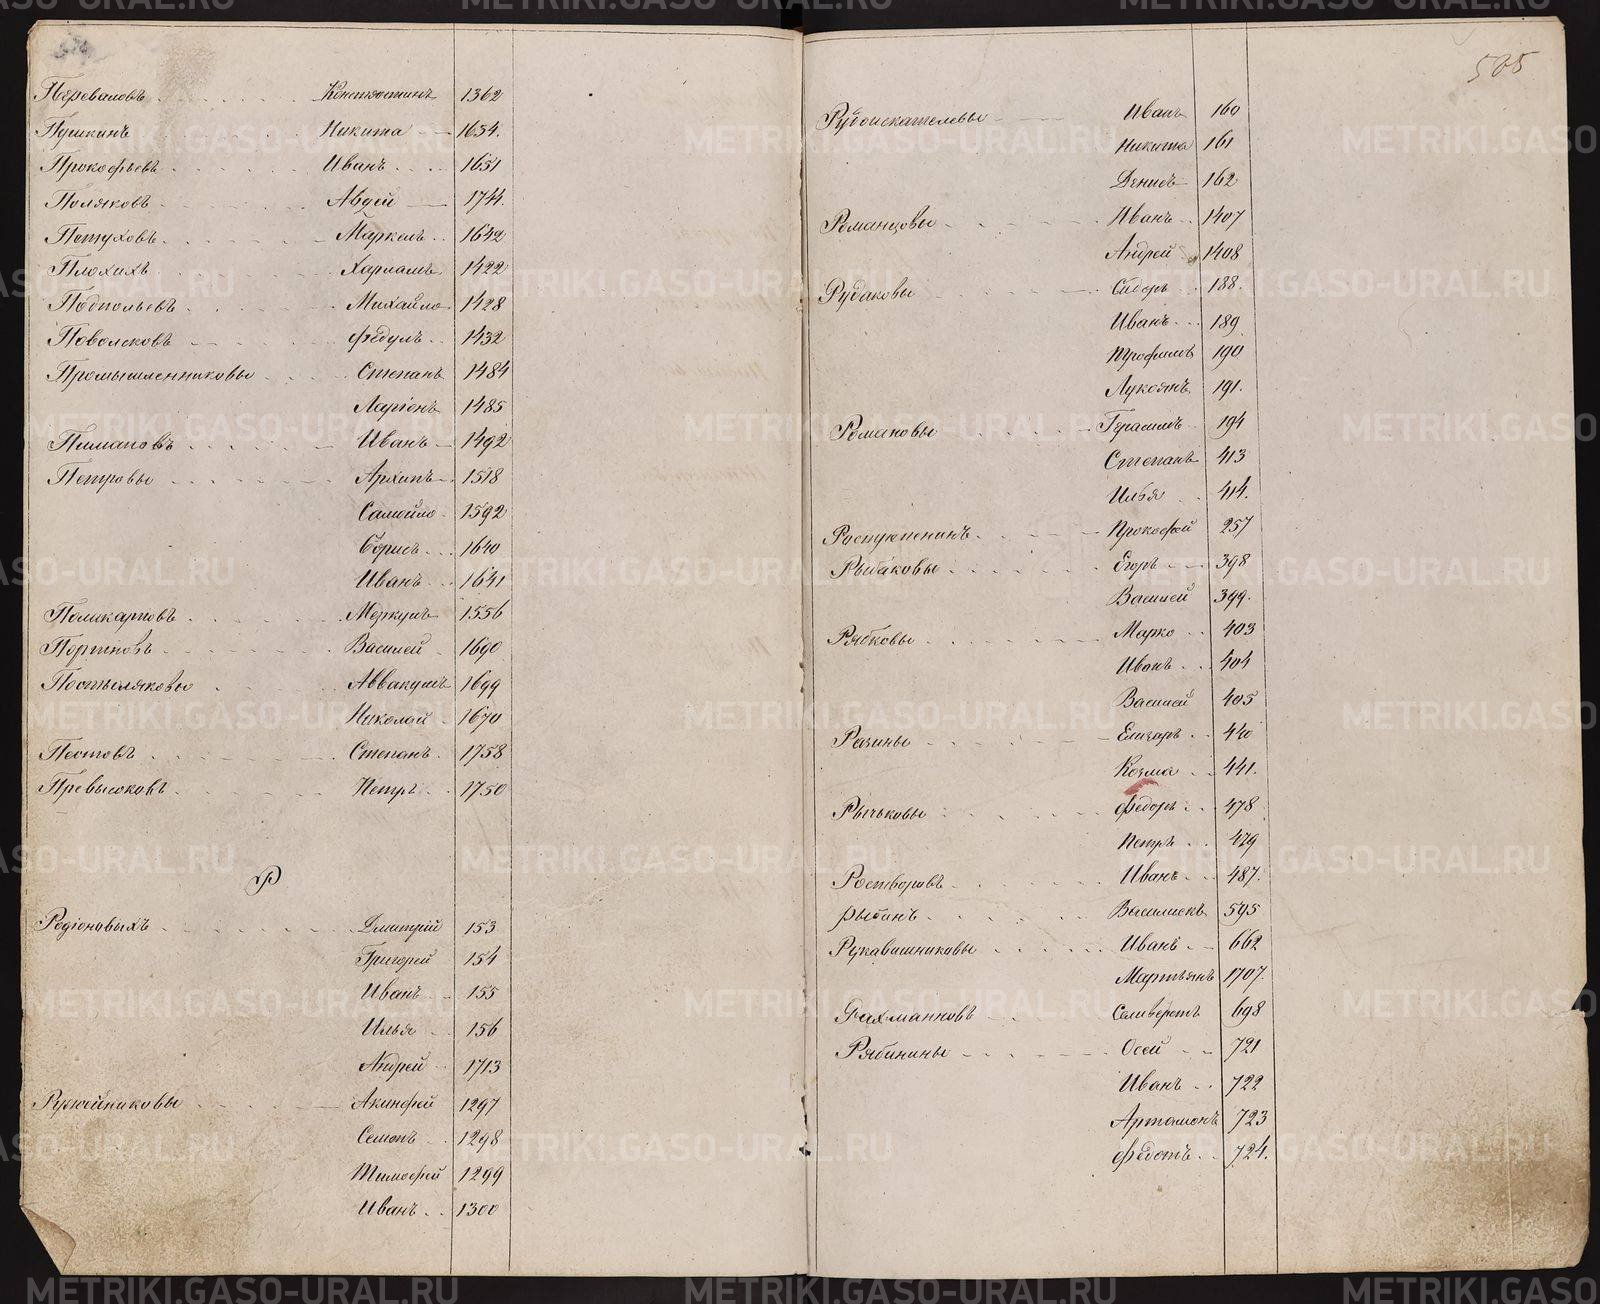 Переваловъ Константинъ 1362
Пушкинъ Никита 1654.
Прокофьевъ Иванъ 1651
Поляковъ Авдей 1744.
Петуховъ Маркелъ 1642
Плохихъ Харламъ 1422
Подпольевъ Михайло 1428
Поволоковъ Федулъ 1432
Промышленниковы Степанъ 1484
Ларіонъ 1485
Пимановъ Иванъ 1492
Петровы Архипъ 1518
Самойло 1592
Борисъ 1640
Иванъ 1641
Поликарповъ Меркулъ 1556
Портновъ Василей 1690
Постыляковы Аввакумъ 1699
Николай 1670
Пестовъ Степанъ 1758
Превысоковъ Петръ 1750
Р
Родіоновыхъ Дмитрій 153
Григорей 154
Иванъ 155
Илья 156
Андрей 1713
Ружейниковы Акинфей 1297
Семонъ 1298
Тимофей 1299
Иванъ 1300
505
Рудоискателевы Иванъ 160
Никита 161
Денисъ 162
Романцовы Иванъ 1407
Андрей 1408
Рудаковы Сидоръ 188.
Иванъ 189
Трофимъ 190
Лукоянъ 191.
Романовы Герасимъ 194
Степанъ 413
Илья 414.
Прокофей 257
Рыбаковы Егоръ 398
Василей 399.
Рябковы Марко 403
Иванъ 404
Василей 405
Разины Елизаръ 440
Козма 441.
Рычьковы Федоръ 478
Петръ 479
Растворовъ Иванъ 487.
Рыбинъ Василискъ 595
Рукавишниковы Иванъ 662
Мартьянъ 1707.
Рахманновъ Селиверстъ 698
Рябинины Осей 721
Иванъ 722
Артамонъ 723
Федотъ 724.